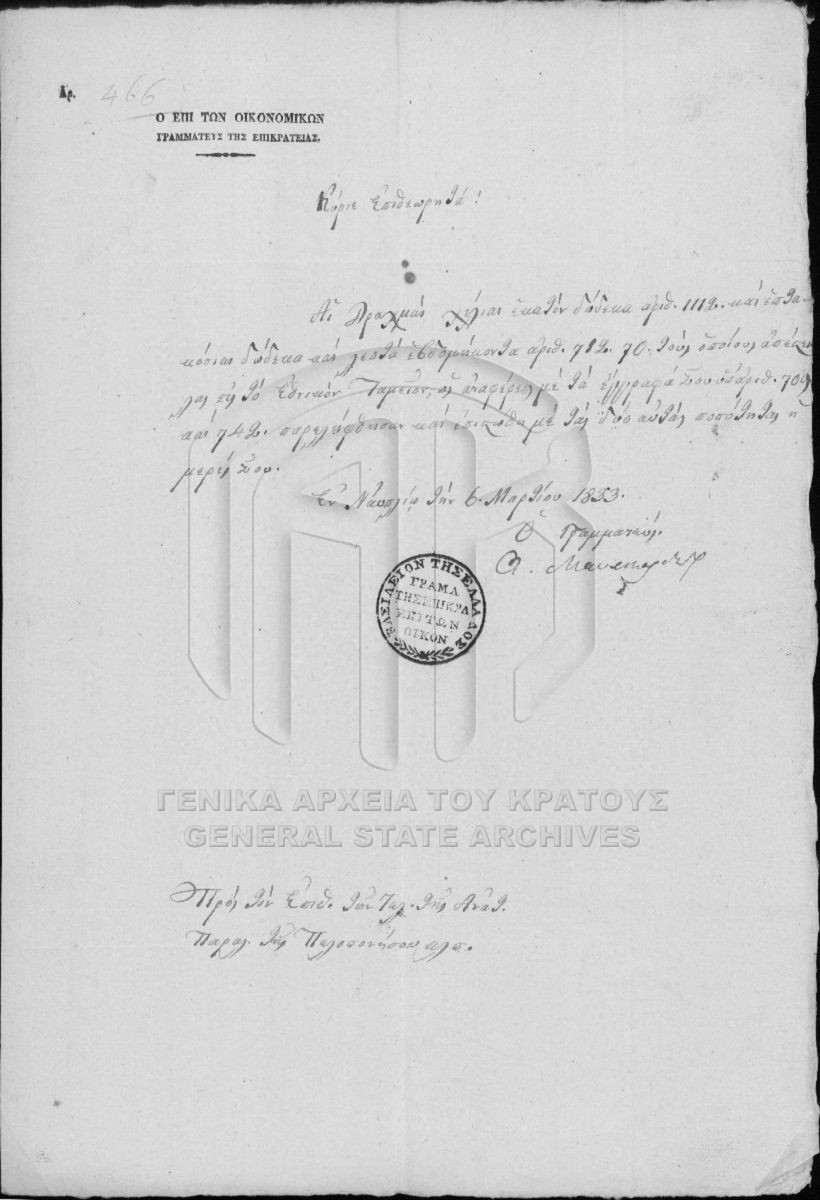 Αρ. 466
Ο ΕΠΙ ΤΩΝ ΟΙΚΟΝΟΜΙΚΩΝ
ΓΡΑΜΜΑΤΕΥΣ ΤΗΣ ΕΠΙΚΡΑΤΕΙΑΣ.
Κύριε Ἐπιθεωρητά!
Αἱ δραχμαί χίλιαι ἑκατόν δώδεκα ἀριθ. 1112. καί ἑπτα-
κόσιαι δώδεκα καί λεπτά ἑβδομήκοντα ἀριθ. 712. 70. τούς ὁποίους ἀπέστει
λας εἰς τό Ἐθνικόν Ταμεῖον, ὡς ἀναφέρεις μέ τά ἔγγραφά Σου ὑπ' ἀριθ. 709
καί 742. παρελείφθησαν καί ἐπιστώθη μέ τάς δύο αὐτάς ποσότητας ἡ
μερίς Σου.
Ἐν Ναυπλίῳ τήν 6. Μαρτίου 1833.
Ὁ Γραμματεύς.
Α. Μαυροκορδάτ
ΒΑΣΙΛΕΙΟΝ ΤΗΣ ΕΛΛΑΔΟΣ
ΓΡΑΜΑ
ΤΗΣ ΕΠΙΚΡΑ
ΕΠΙ ΤΩΝ
ΟΙΚΟΝ
ΓΕΝΙΚΑ ΑΡΧΕΙΑ ΤΟΥ ΚΡΑΤΟΥΣ
GENERAL STATE ARCHIVES
Πρός τόν Ἐπιθ. τῶν Τελ. τῆς Ἀνατ.
Παραλ. τῆς Πελοπονήσου κλπ.